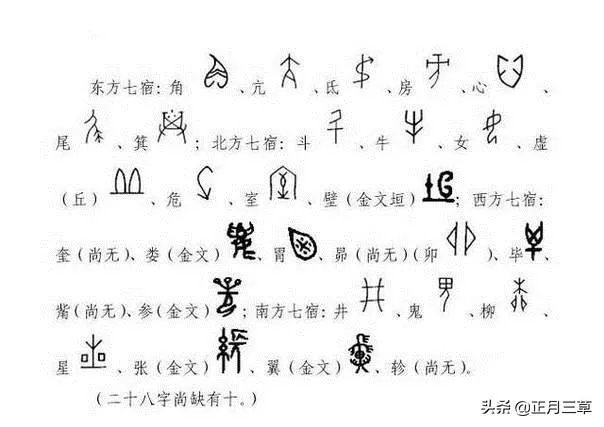 东方七宿：角、亢、氐、房、心、
尾、箕；北方七宿：斗、牛、女、虚
（丘）、危、室、壁（金文垣）；西方七宿：
奎（尚无）、娄（金文）、胃、昴（尚无）（卯）、毕、
觜（尚无）、参（金文）；南方七宿：井、鬼、柳、
星、张（金文）、翼（金文）、轸（尚无）。
（二十八字尚缺有十。）
头条 @正月三草